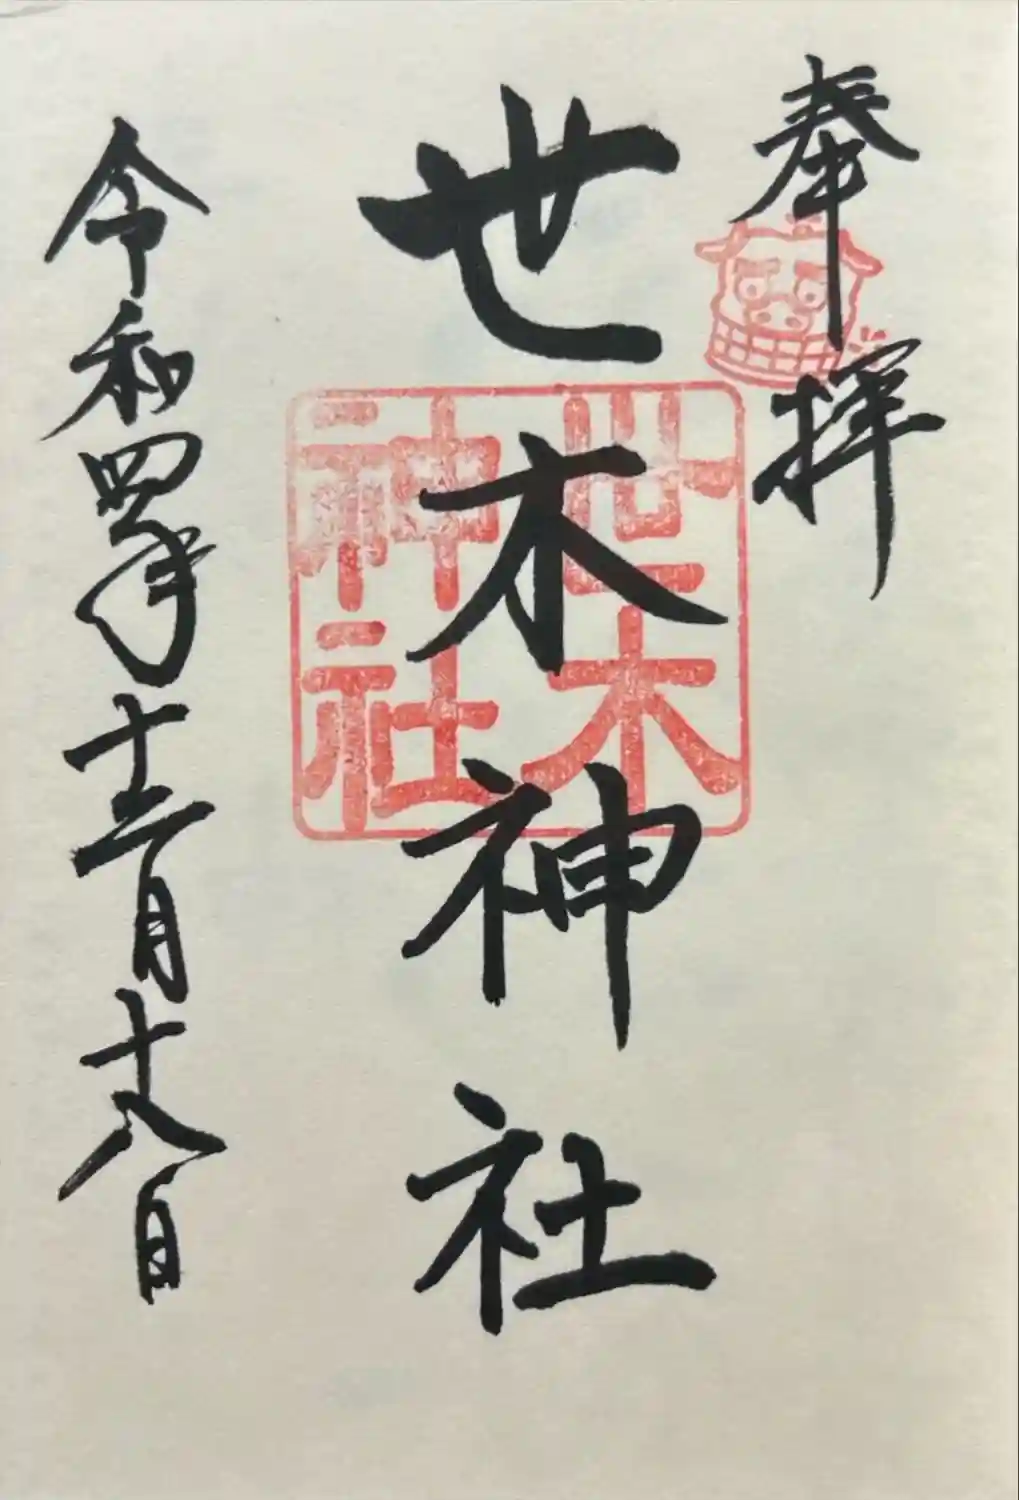 奉拝
世木神社
世木
神社
令和四年十二月十八日